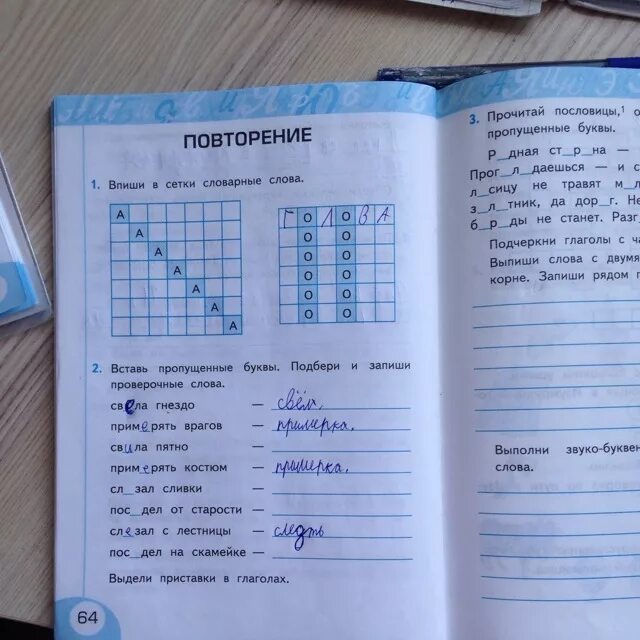 ПОВТОРЕНИЕ
1. Впиши в сетки словарные слова.
А
А
А
А
А
А
А
Г О Л О В А
О О
О О
О О
О О
О О
2. Вставь пропущенные буквы. Подбери и запиши
проверочные слова.
свела гнездо —
примерять врагов — примерка.
свила пятно —
примерять костюм — примерка.
сл_зал сливки —
пос_дел от старости —
слезал с лестницы —
пос_дел на скамейке —
Выдели приставки в глаголах.
64
3. Прочитай пословицы,¹
пропущенные буквы.
Р_дная ст_р_на —
Прог_л_даешься — и с
л_сицу не травят м
з_л_тник, да дор_г. Не
б_р_ды не станет. Разг
Подчеркни глаголы с ча
Выпиши слова с двумя
корне. Запиши рядом п
Выполни звуко-буквен
слова.